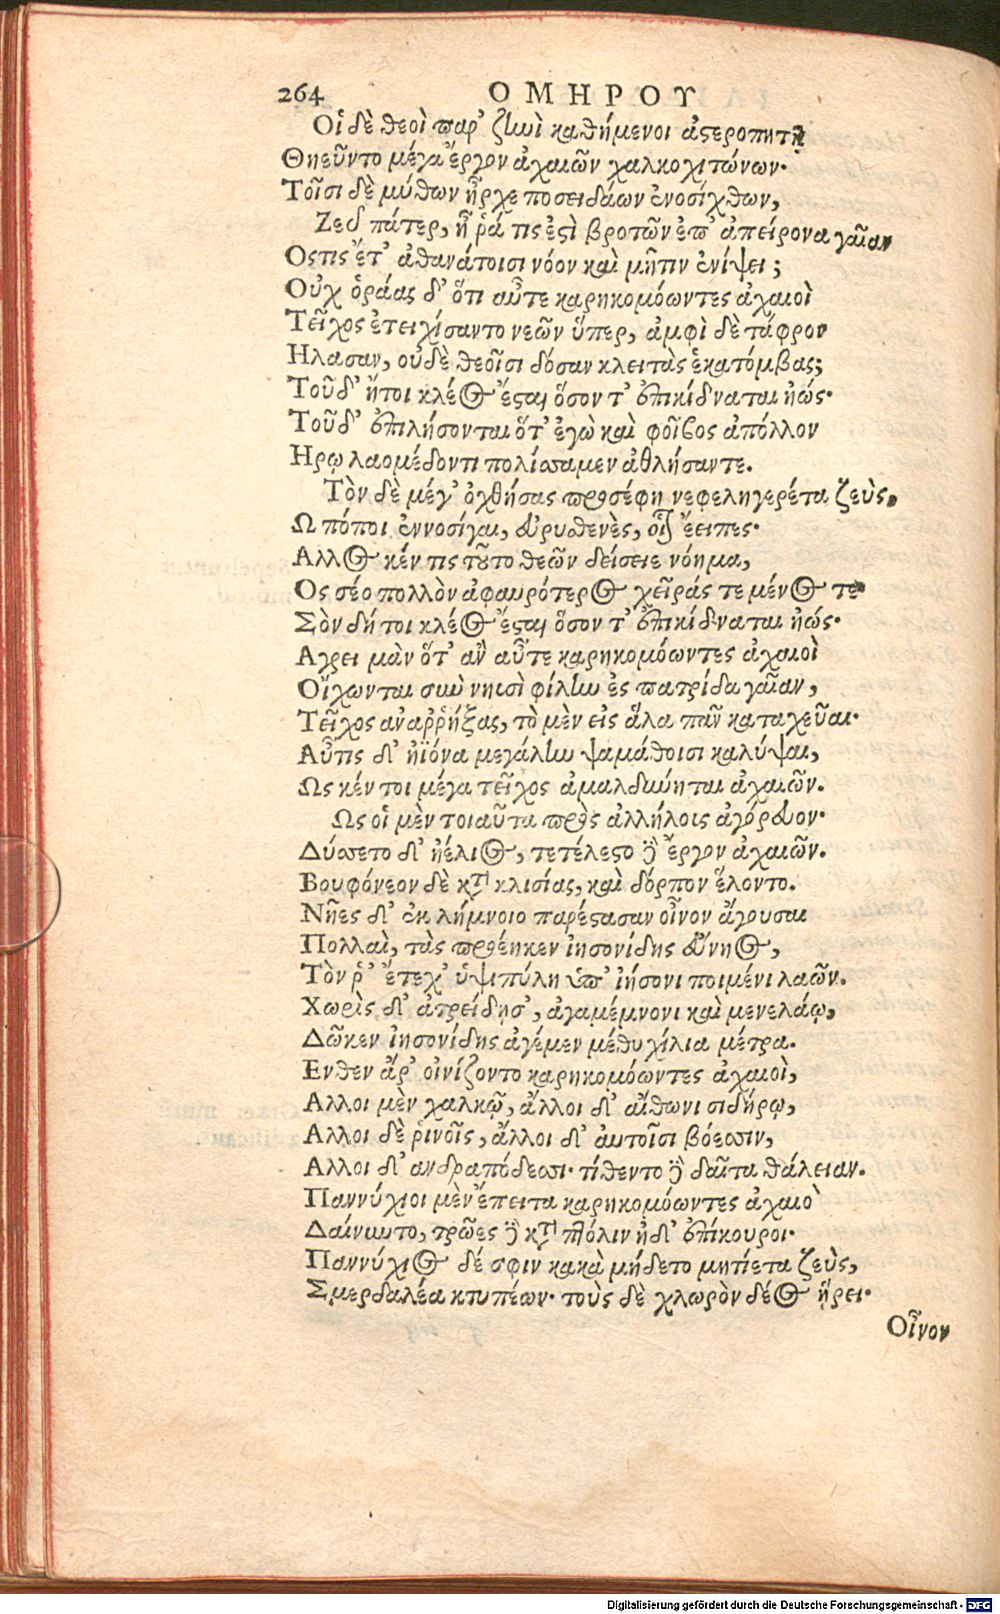 264 ΟΜΗΡΟΥ
Οἱ δὲ θεοὶ παρ' ζηνὶ καθήμενοι ἀστεροπητῇ
Θηεῦντο μέγα ἔργον ἀχαιῶν χαλκοχιτώνων·
Τοῖσι δὲ μύθων ἦρχε ποσειδάων ἐνοσίχθων,
Ζεῦ πάτερ, ἦ ῥά τις ἐστὶ βροτῶν ἐπ' ἀπείρονα γαῖαν
Οςτις ἔτ' ἀθανάτοισι νόον καὶ μῆτιν ἐνίψει;
Οὐχ ὁράας δ' ὅτι αὖτε καρηκομόωντες ἀχαιοὶ
Τεῖχος ἐτειχίσαντο νεῶν ὕπερ, ἀμφὶ δὲ τάφρον
Ηλασαν, οὐδὲ θεοῖσι δόσαν κλειτὰς ἑκατόμβας;
Τοῦ δ' ἤτοι κλέος ἔσται ὅσον τ' ἐπικίδναται ἠώς·
Τοῦ δ' ἐπιλήσονται ὅτ' ἐγὼ καὶ φοῖβος ἀπόλλον
Ηρῳ λαομέδοντι πολίσσαμεν ἀθλήσαντε.
Τὸν δὲ μέγ' ὀχθήσας προσέφη νεφεληγερέτα ζεὺς,
Ω πόποι ἐννοσίγαι, εὐρυσθενὲς, οἷον ἔειπες·
Αλλος κέν τις τοῦτο θεῶν δείσειε νόημα,
Ος σέο πολλὸν ἀφαυρότερος χεῖράς τε μένος τε
Σὸν δή τοι κλέος ἔσται ὅσον τ' ἐπικίδναται ἠώς·
Αγρει μὰν ὅτ' ἂν αὖτε καρηκομόωντες ἀχαιοὶ
Οἴχωνται σὺν νηυσὶ φίλην ἐς πατρίδα γαῖαν,
Τεῖχος ἀναῤῥήξας, τὸ μὲν εἰς ἅλα πᾶν καταχεῦαι·
Αὖτις δ' ἠϊόνα μεγάλην ψαμάθοισι καλύψαι,
Ως κέν τοι μέγα τεῖχος ἀμαλδύνηται ἀχαιῶν.
Ως οἱ μὲν τοιαῦτα πρὸς ἀλλήλοις ἀγόρευον·
Δύσετο δ' ἠέλιος, τετέλεστο δὲ ἔργον ἀχαιῶν.
Βουφόνεον δὲ κατὰ κλισίας, καὶ δόρπον ἕλοντο.
Νῆες δ' ἐκ λήμνοιο παρέστασαν οἶνον ἄγουσαι
Πολλαὶ, τὰς προέηκεν ἰησονίδης εὔνηος,
Τὸν ῥ' ἔτεχ' ὑψιπύλη ὑπ' ἰήσονι ποιμένι λαῶν.
Χωρὶς δ' ἀτρείδῃσ', ἀγαμέμνονι καὶ μενελάῳ,
Δῶκεν ἰησονίδης ἀγέμεν μέθυ χίλια μέτρα.
Ενθεν ἄρ' οἰνίζοντο καρηκομόωντες ἀχαιοὶ,
Αλλοι μὲν χαλκῷ, ἄλλοι δ' αἴθωνι σιδήρῳ,
Αλλοι δὲ ῥινοῖς, ἄλλοι δ' αὐτοῖσι βόεσσιν,
Αλλοι δ' ανδραπόδεσσι· τίθεντο δὲ δαῖτα θάλειαν.
Παννύχιοι μὲν ἔπειτα καρηκομόωντες ἀχαιοὶ
Δαίνυντο, τρῶες δὲ κατὰ πτόλιν ἠδ' ἐπίκουροι·
Παννύχιος δέ σφιν κακὰ μήδετο μητίετα ζεὺς,
Σμερδαλέα κτυπέων· τοὺς δὲ χλωρὸν δέος ᾕρει·
Οἶνον
Digitalisierung gefördert durch die Deutsche Forschungsgemeinschaft - DFG